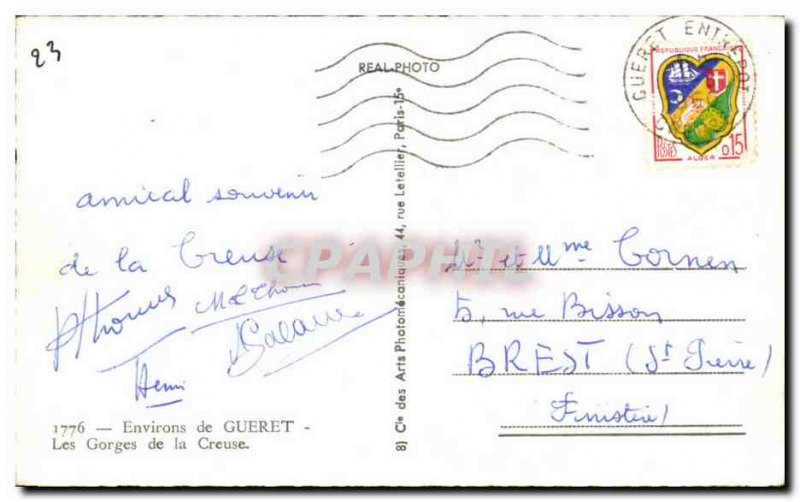 23
REAL-PHOTO
GUERET ENTREPOT
REPUBLIQUE FRANÇAISE
POSTES
0,15
ALGER
amical souvenir
de la Creuse
Henri
CPAPHIL
8) Cie des Arts Photomécaniques, 44, rue Letellier, Paris-15e
Mr et Mme Cornen
5, rue Bisson
BREST (St Pierre)
Finistère
1776 — Environs de GUERET -
Les Gorges de la Creuse.